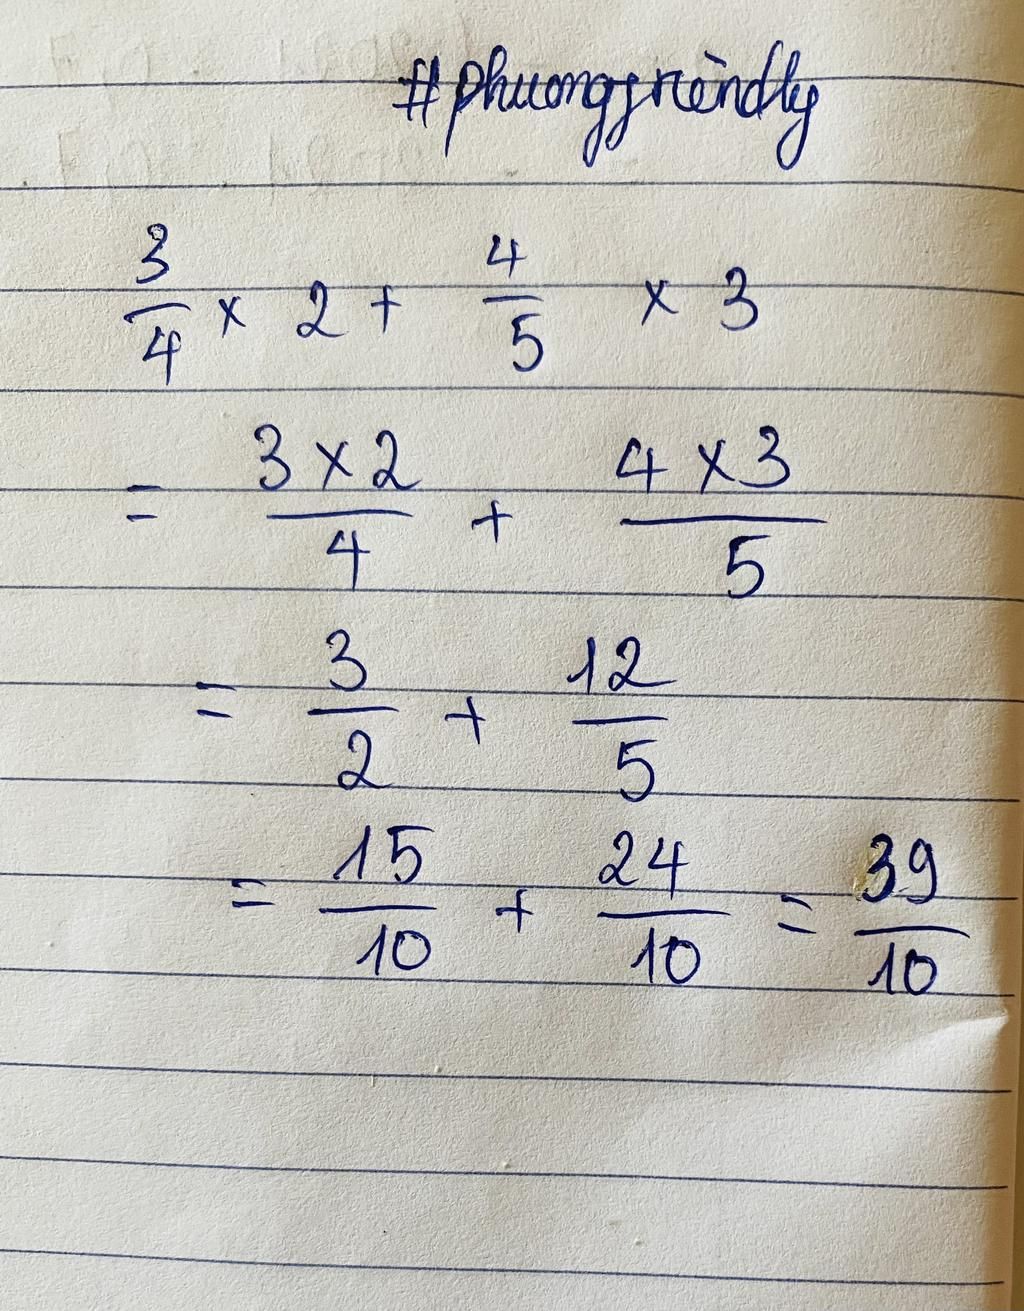 #phuongfrièndly
3/4 × 2 + 4/5 × 3
= 3 × 2/4 + 4 × 3/5
= 3/2 + 12/5
= 15/10 + 24/10 = 39/10